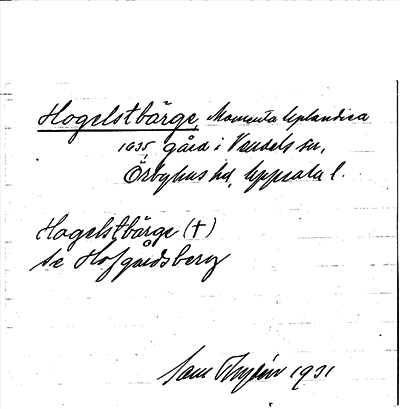 Hogelstbärge, Momenta Uplandica
1635, gård i Vendels sn,
Örbyhus hd, Uppsala l.
Hogelstbärge (†)
se Hofgårdsberg
Sam 1931